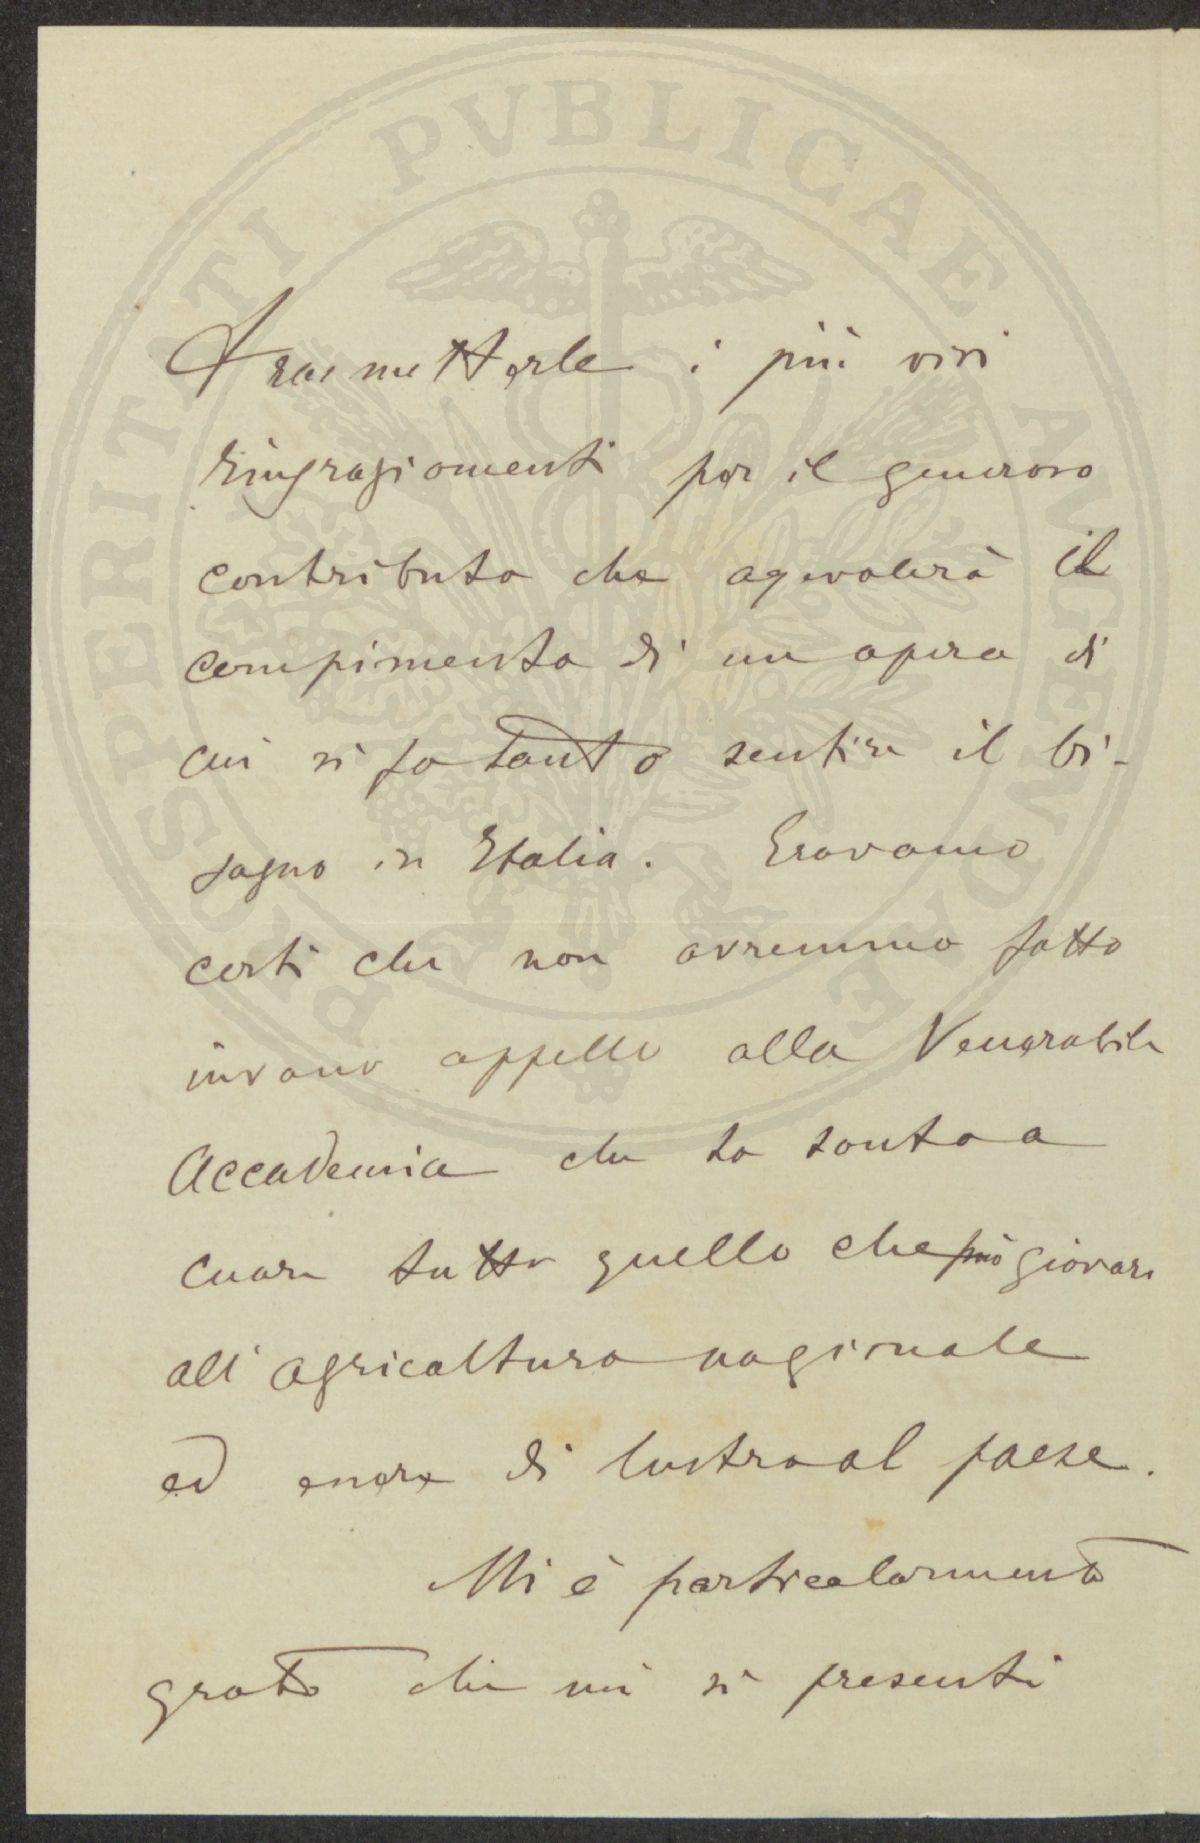 PROSPERITATI PVBLICAE AVGENDAE
Trasmetterle i più vivi
ringraziamenti per il generoso
contributo che agevolerà il
compimento di un opera di
cui si fa tanto sentire il bi-
sogno in Italia. Eravamo
certi che non avremmo fatto
invano appello alla Venerabile
Accademia che ha tanto a
cuore tutto quello che può giovare
all'agricoltura nazionale
ed essere di lustro al paese.
Mi è particolarmente
grato che mi si presenti